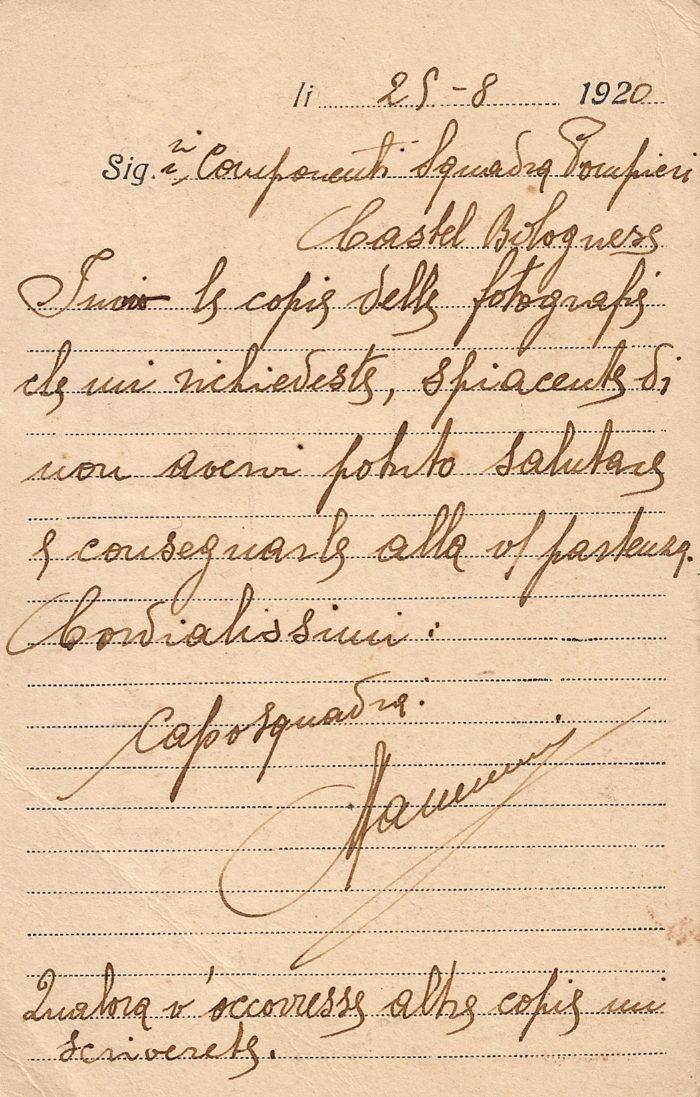 li 25-8 1920
Sig.ri Componenti Squadra Pompieri
Castel Bolognese
Invio le copie delle fotografie
che mi richiedeste, spiacente di
non avervi potuto salutare
e consegnarle alla v/ partenza.
Cordialissimi:
Caposquadra.
Qualora v'occorresse altre copie mi
scriverete.